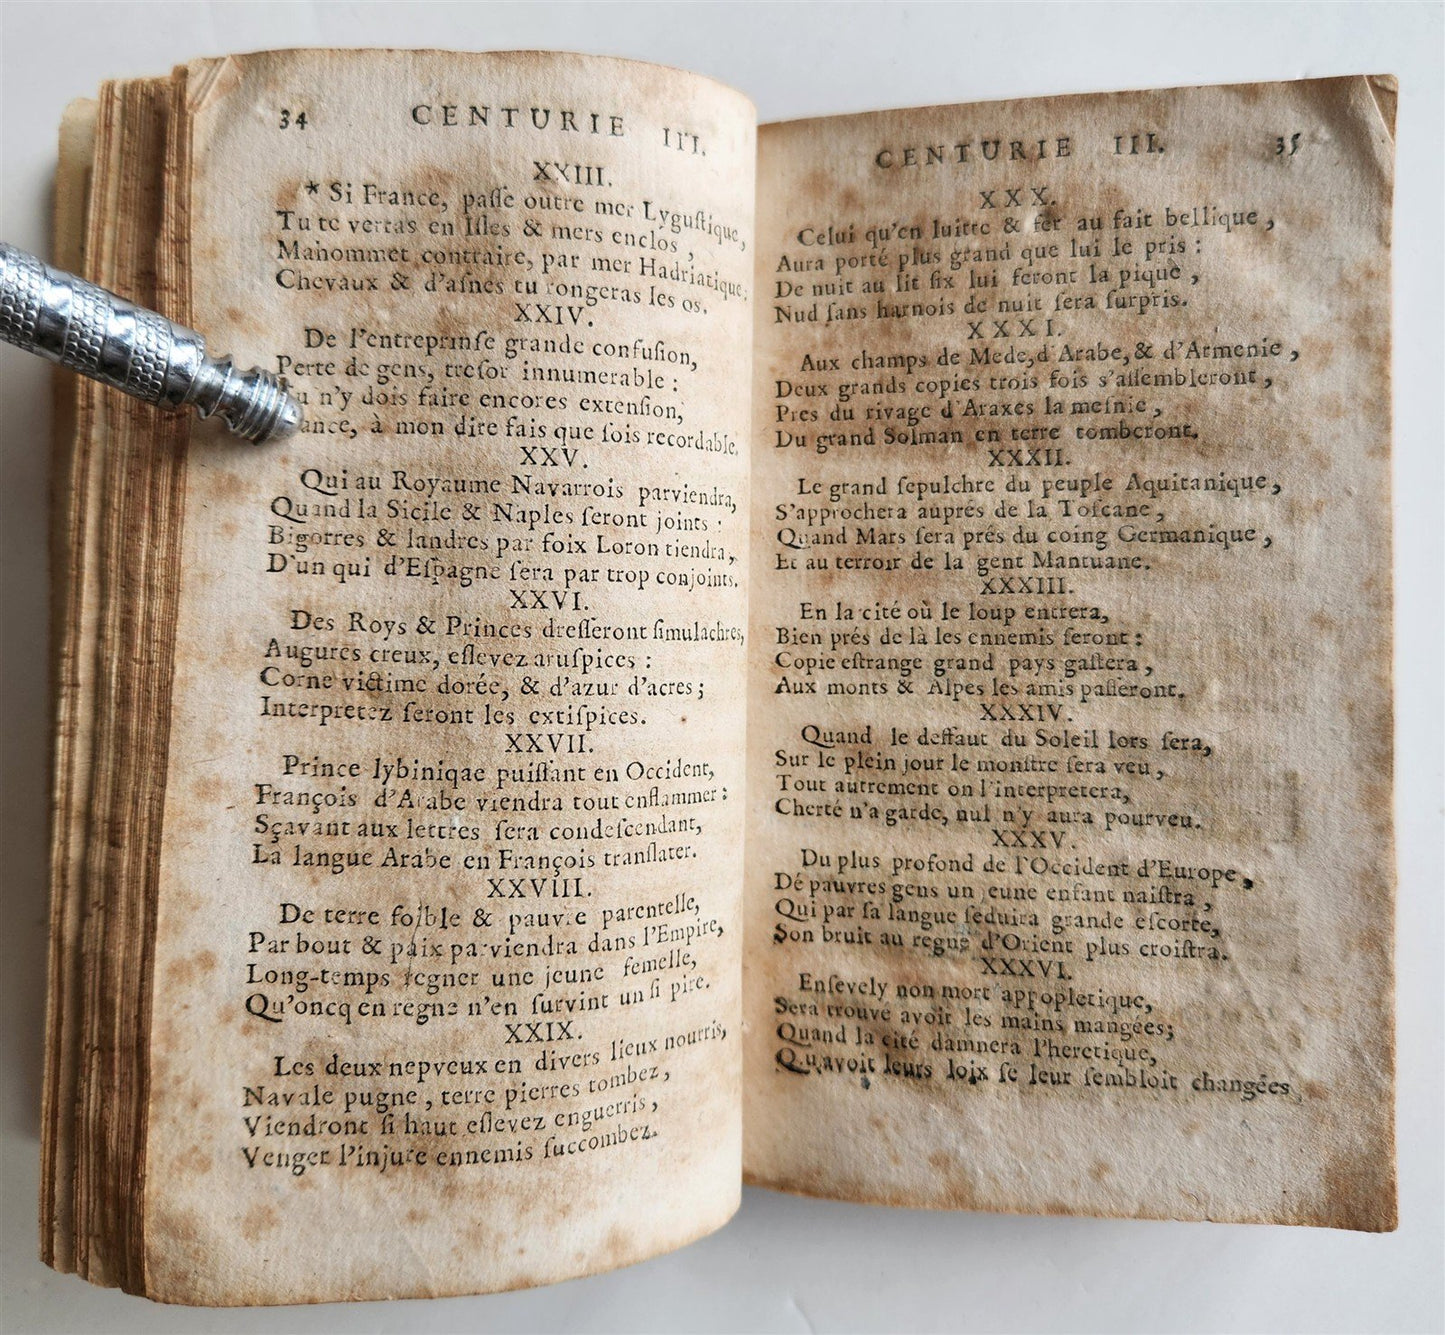 34 CENTURIE III.
XXIII.
* Si France, paſſe outre mer Lyguſtique,
Tu te verras en Iſles & mers enclos,
Mahommet contraire, par mer Hadriatique;
Chevaux & d'aſnes tu rongeras les os.
XXIV.
De l'entreprinſe grande confuſion,
Perte de gens, treſor innumerable :
Tu n'y dois faire encores extenſion,
France, à mon dire fais que ſois recordable.
XXV.
Qui au Royaume Navarrois parviendra,
Quand la Sicile & Naples ſeront joints :
Bigorres & landres par foix Loron tiendra,
D'un qui d'Eſpagne ſera par trop conjoints.
XXVI.
Des Roys & Princes dreſſeront ſimulachres,
Augures creux, eſlevez aruſpices :
Corne victime dorée, & d'azur d'acres ;
Interpretez ſeront les extiſpices.
XXVII.
Prince lybiniqae puiſſant en Occident,
François d'Arabe viendra tout enflammer :
Sçavant aux lettres ſera condeſcendant,
La langue Arabe en François tranſlater.
XXVIII.
De terre foible & pauvre parentelle,
Par bout & paix parviendra dans l'Empire,
Long-temps regner une jeune femelle,
Qu'oncq en regne n'en ſurvint un ſi pire.
XXIX.
Les deux nepveux en divers lieux nourris,
Navale pugne, terre pierres tombez,
Viendront ſi haut eſlevez enguerris,
Venger l'injure ennemis ſuccombez.
CENTURIE III. 35
XXX.
Celui qu'en luitte & fer au fait bellique,
Aura porté plus grand que lui le pris :
De nuit au lit ſix lui feront la pique,
Nud ſans harnois de nuit ſera ſurpris.
XXXI.
Aux champs de Mede, d'Arabe, & d'Armenie,
Deux grands copies trois fois s'aſſembleront,
Pres du rivage d'Araxes la meſnie,
Du grand Solman en terre tomberont.
XXXII.
Le grand ſepulchre du peuple Aquitanique,
S'approchera auprés de la Toſcane,
Quand Mars ſera prés du coing Germanique,
Et au terroir de la gent Mantuane.
XXXIII.
En la cité où le loup entrera,
Bien prés de là les ennemis ſeront :
Copie eſtrange grand pays gaſtera,
Aux monts & Alpes les amis paſſeront.
XXXIV.
Quand le deffaut du Soleil lors ſera,
Sur le plein jour le monſtre ſera veu,
Tout autrement on l'interpretera,
Cherté n'a garde, nul n'y aura pourveu.
XXXV.
Du plus profond de l'Occident d'Europe,
Dé pauvres gens un jeune enfant naiſtra,
Qui par ſa langue ſeduira grande eſcorte,
Son bruit au regne d'Orient plus croiſtra.
XXXVI.
Enſevely non mort appopletique,
Sera trouvé avoir les mains mangées;
Quand la cité damnera l'heretique,
Qu'avoit leurs loix ſe leur ſembloit changées